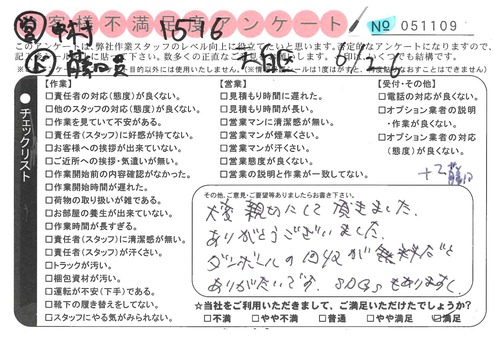 お客様不満足度アンケート
№ 051109
営 中村 1516
このアンケートは、弊社作業スタッフのレベル向上に役立てたいと思います。否定的なアンケートになりますので、
6/26
チェックリスト
【作業】
□責任者の対応(態度)が良くない。
□他のスタッフの対応(態度)が良くない。
□作業を見ていて不安がある。
□責任者(スタッフ)に好感が持てない。
□お客様への挨拶が出来ていない。
□ご近所への挨拶・気遣いが無い。
□作業開始前の内容確認がなかった。
□作業開始時間が遅れた。
□荷物の取り扱いが雑である。
□お部屋の養生が出来ていない。
□作業時間が長すぎる。
□責任者(スタッフ)に清潔感が無い。
□責任者(スタッフ)が汗くさい。
□トラックが汚い。
□梱包資材が汚い。
□運転が不安(下手)である。
□靴下の履き替えをしてない。
□スタッフにやる気がみられない。
【営業】
□見積もり時間に遅れた。
□見積もり時間が長い。
□営業マンに清潔感が無い。
□営業マンが煙草くさい。
□営業マンが汗くさい。
□営業態度が良くない。
□営業の説明と作業が一致してない。
【受付・その他】
□電話の対応が良くない。
□オプション業者の説明
・作業が良くない。
□オプション業者の対応
(態度)が良くない。
その他、ご意見・ご要望等ありましたらお書き下さい。
大変親切にして頂きました。
ありがとうございました。
ダンボールの回収が無料だと
ありがたいです。SDGsもありますし
☆当社をご利用いただきまして、ご満足いただけたでしょうか?
□不満 □やや不満 □普通 □やや満足 ☑満足